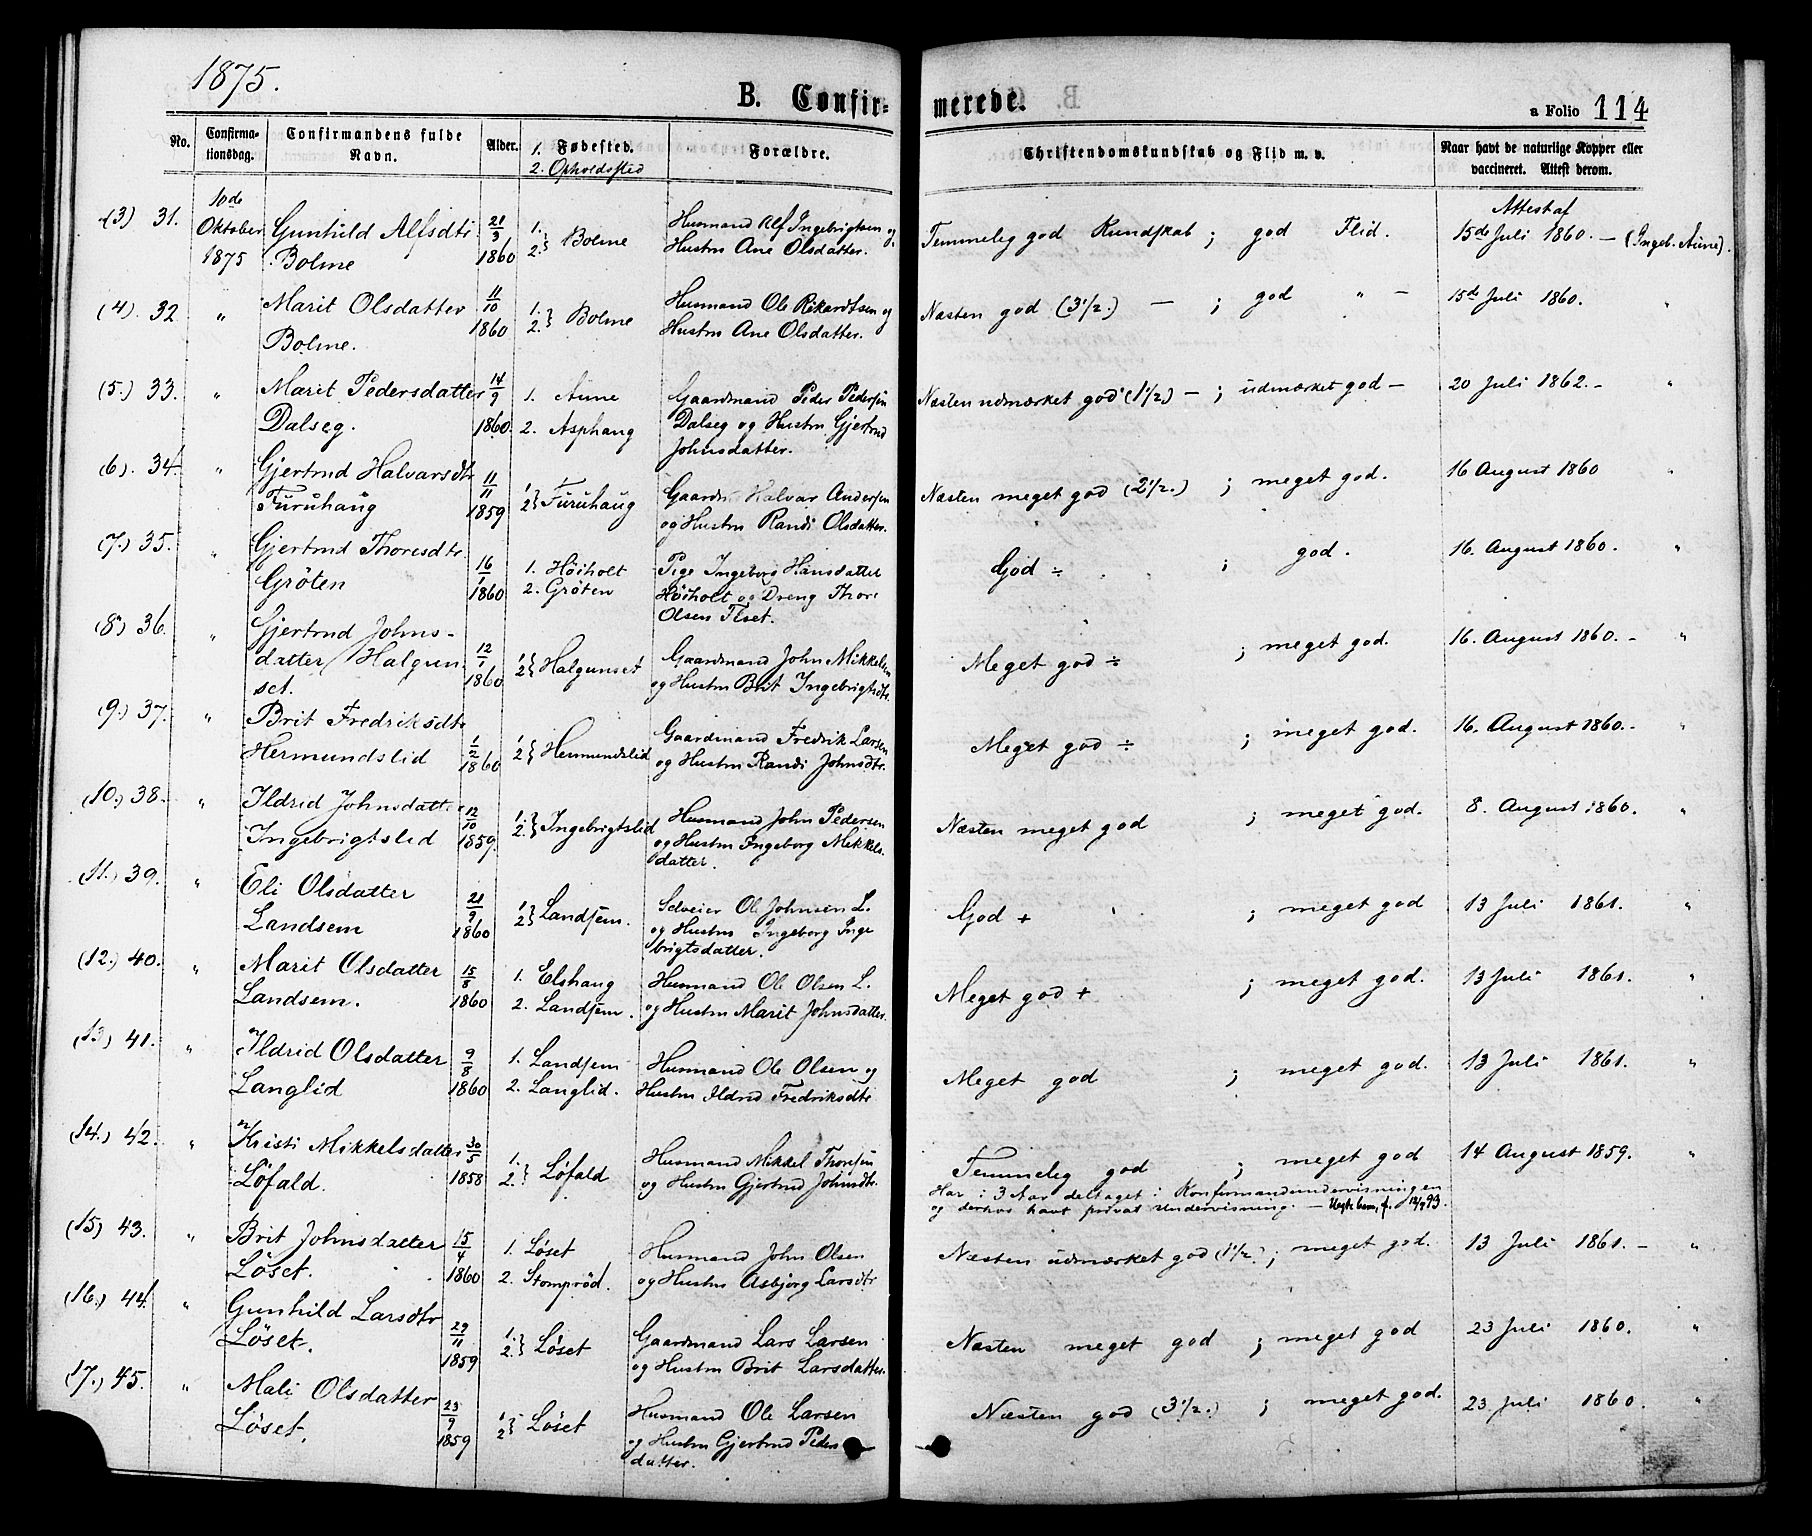 1875.
B. Confir-
merede.
a Folio 114
No.
Confirma-
tionsdag.
Confirmandens fulde
Navn.
Alder.
1. Fødested.
2. Opholdssted
Forældre.
Christendomskundskab og Flid m. v.
Naar havt de naturlige Kopper eller
vaccineret. Attest derom.
(3) 31.
10de
Oktober
1875
Gunhild Alfsdtr.
Bolme
21/3
1860
1.
2. } Bolme
Husmand Alf Ingebrigtsen og
Hustru Ane Olsdatter.
Temmelig god Kundskab ; god Flid.
Attest af
15de Juli 1860. – (Ingeb. Aune).
(4). 32
"
Marit Olsdatter
Bolme.
11/10
1860
1.
2. } Bolme
Husmand Ole Rikardtsen og
Hustru Ane Olsdatter.
Næsten god (3½.) – ; god " –
15d Juli 1860. "
(5.) 33.
"
Marit Pedersdatter
Dalseg.
14/9
1860.
1. Aune
2. Asphaug
Gaardmand Peder Pedersen
Dalseg og Hustru Gjertrud
Johnsdatter.
Næsten udmærket god (1½.) – ; udmærket god –
20 Juli 1862. – "
(6). 34.
"
Gjertrud Halvarsdtr
Furuhaug
11/11
1859
1
2 } Furuhaug
Gaardm Halvar Andersen
og Hustru Randi Olsdatter.
Næsten meget god (2½.) ; meget god.
16 August 1860 "
(7.) 35.
"
Gjertrud Thoresdtr.
Gröten
16/1
1860
1. Höiholt
2. Gröten
Pige Ingeborg Hansdatter
Höiholt og Dreng Thore
Olsen Flset.
God ÷ ; god.
16. August 1860. "
(8) 36.
"
Gjertrud Johns-
datter Halgun-
set.
12/1
1860
1
2 } Halgunset
Gaardmand John Mikkelsen
og Hustru Brit Ingebrigtsdtr.
Meget god ÷ ; meget god.
16. August 1860. – "
9.) 37.
"
Brit Fredriksdtr
Hermundslid
1/2
1860
1
2 } Hermundslid
Gaardmand Fredrik Larsen
og Hustru Randi Johnsdtr.
Meget god ÷ ; meget god.
16. August 1860. – "
(10.) 38.
"
Ildrid Johnsdatter
Ingebrigtslid
12/10
1859.
1.
2. } Ingebrigtslid
Husmand John Pedersen
og Hustru Ingeborg Mikkels-
datter.
Næsten meget god ; meget god.
8. August 1860. "
(11.) 39.
"
Eli Olsdatter
Landsem
21/9
1860
1
2 } Landsem.
Selveier Ole Johnsen L.
og Hustru Ingeborg Inge
brigtsdatter.
God + ; meget god
13 Juli 1861. "
(12.) 40.
"
Marit Olsdatter
Landsem.
15/8
1860
1. Elshaug
2. Landsem.
Husmand Ole Olsen L.
og Hustru Marit Johnsdatter.
Meget god + ; meget god.
13 Juli 1861. "
(13) 41.
"
Ildrid Olsdatter
Langlid
9/8
1860
1. Landsem
2. Langlid.
Husmand Ole Olsen og
Hustru Ildrid Fredriksdtr
Meget god ; meget god.
13 Juli 1861. "
(14.) 42.
"
Kristi Mikkelsdatter
Löfald.
30/5
1858
1.
2. } Löfald
Husmand Mikkel Thoresen
og Hustru Gjertrud Johnsdtr.
Temmelig god ; meget god
Har i 3 Aar deltaget i Konfirmandundervisningen
og derhos havt privat Undervisning.
14 August 1859. "
(15) 43.
"
Brit Johnsdatter
Löset.
15/4
1860
1. Löset
2. Stomprød.
Husmand John Olsen
og Hustru Asbjörg Larsdtr
Næsten udmærket god (1½.) ; meget god.
13 Juli 1861. – "
(16.) 44.
"
Gunhild Larsdtr
Löset.
29/11
1859
1.
2. } Löset
Gaardmand Lars Larsen
og Hustru Brit Larsdatter.
Næsten meget god ; meget god
23 Juli 1860. "
(17.) 45.
"
Mali Olsdatter
Löset.
23/9
1859
1
2 } Löset
Husmand Ole Larsen
og Hustru Gjertrud Peders
datter.
Næsten god (3½.) ; meget god.
23 Juli 1860. "